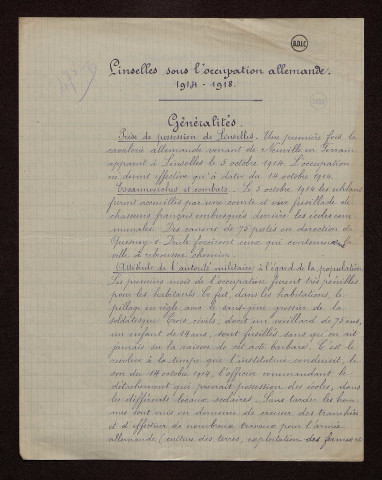 B.D.I.C
Linselles sous l'occupation allemande.
1914 - 1918.
Généralités.
Prise de possession de Linselles. Une première fois la
cavalerie allemande venant de Neuville en Ferrain
apparut à Linselles le 5 octobre 1914. L'occupation
en devint effective qu'à dater du 14 octobre 1914.
Escarmouches et combats. Le 5 octobre 1914 les uhlans
furent accueillis par une courte et vive fusillade de
chasseurs français embusqués derrière les écoles com-
munales. Des canons de 75 postés en direction de
Quesnoy s/ Deûle forcèrent ceux qui contournaient la
ville à rebrousser chemin.
Attitude de l'autorité militaire à l'égard de la population
Les premiers mois de l'occupation furent très pénibles
pour les habitants. Ce fut, dans les habitations, le
pillage en règle avec le sans-gêne grossier de la
soldatesque. Trois civils, dont un vieillard de 75 ans,
un enfant de 14 ans, sont fusillés, sans qu'on ait
jamais su la raison de cet acte barbare. C'est le
revolver à la tempe que l'institutrice conduisit, le
soir du 14 octobre 1914, l'officier commandant le
détachement qui prenait possession des écoles, dans
les différents locaux scolaires. Sans tarder les hom-
mes sont mis en demeure de creuser des tranchées
et d'effectuer de nombreux travaux pour l'armée
allemande (culture des terres, exploitation des fermes et